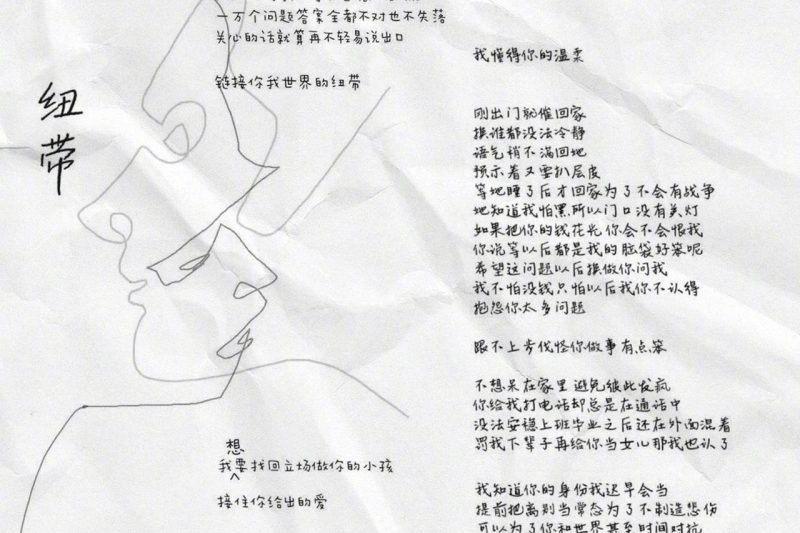 纽带
一万个问题答案全都不对也不失落
关心的话就算再不轻易说出口
链接你我世界的纽带
我想要找回立场做你的小孩
接住你给出的爱
我懂得你的温柔
刚出门就催回家
换谁都没法冷静
语气稍不满回她
预示着又要扒层皮
等她睡了后才回家为了不会有战争
她知道我怕黑所以门口没有关灯
如果把你的钱花光你会不会恨我
你说等以后都是我的脑袋好笨呢
希望这问题以后换做你问我
我不怕没钱只怕以后我你不认得
抱怨你太多问题
跟不上步伐怪你做事有点笨
不想呆在家里避免彼此发疯
你给我打电话却总是在通话中
没法安稳上班毕业之后还在外面混着
罚我下辈子再给你当女儿那我也认了
我知道你的身份我迟早会当
提前把离别当常态为了不制造悲伤
可以为了你和世界甚至时间对抗